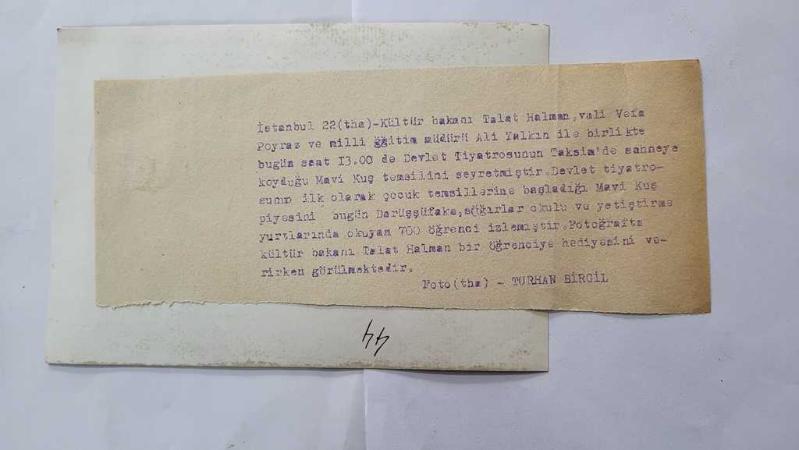 İstanbul 22(tha)-Kültür bakanı Talat Halman,vali Vefa
Poyraz ve milli eğitim müdürü Ali Yalkın ile birlikte
bugün saat I3.00 de Devlet Tiyatrosunun Taksim'de sahneye
koyduğu Mavi Kuş temsilini seyretmiştir.Devlet tiyatro-
sunun ilk olarak çocuk temsillerine başladığı Mavi Kuş
piyesini bugün Darüşşüfaka,sağırlar okulu ve yetiştirme
yurtlarında okuyan 700 öğrenci izlemiştir.Fotoğrafta
kültür bakanı Talat Halman bir öğrenciye hediyesini ve-
rirken görülmektedir.
Foto(tha) - TURHAN BİRGİL
44